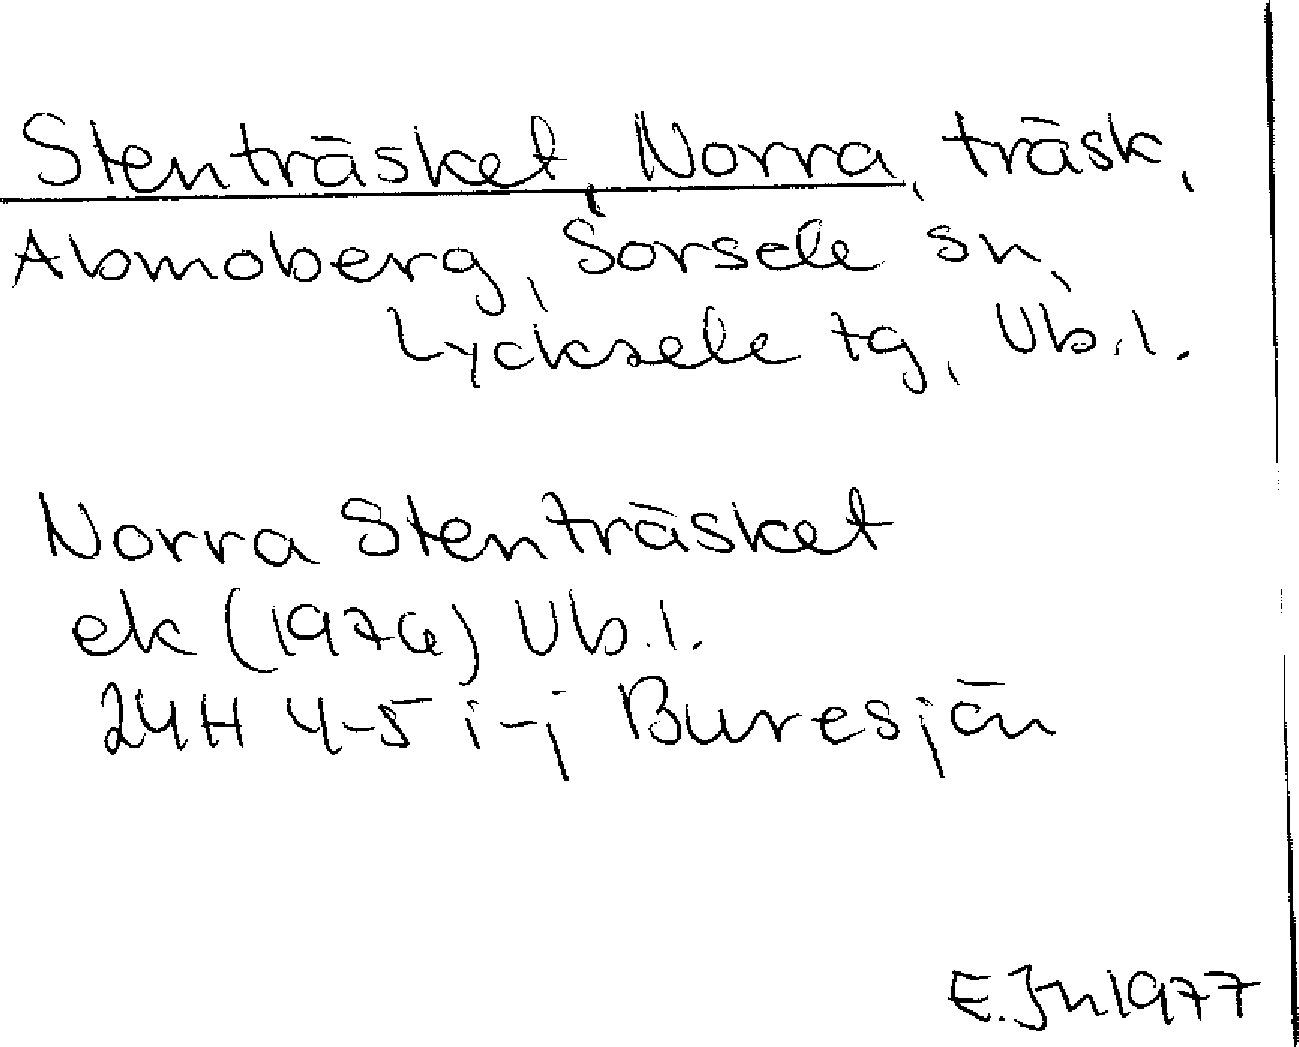 Stenträsket, Norra, träsk,
Abmoberg, Sorsele sn,
Lycksele tg, Vb.l.
Norra Stenträsket
ek (1976) Vb.l.
24H 4-5 i-j Buresjön
E.Jn 1977